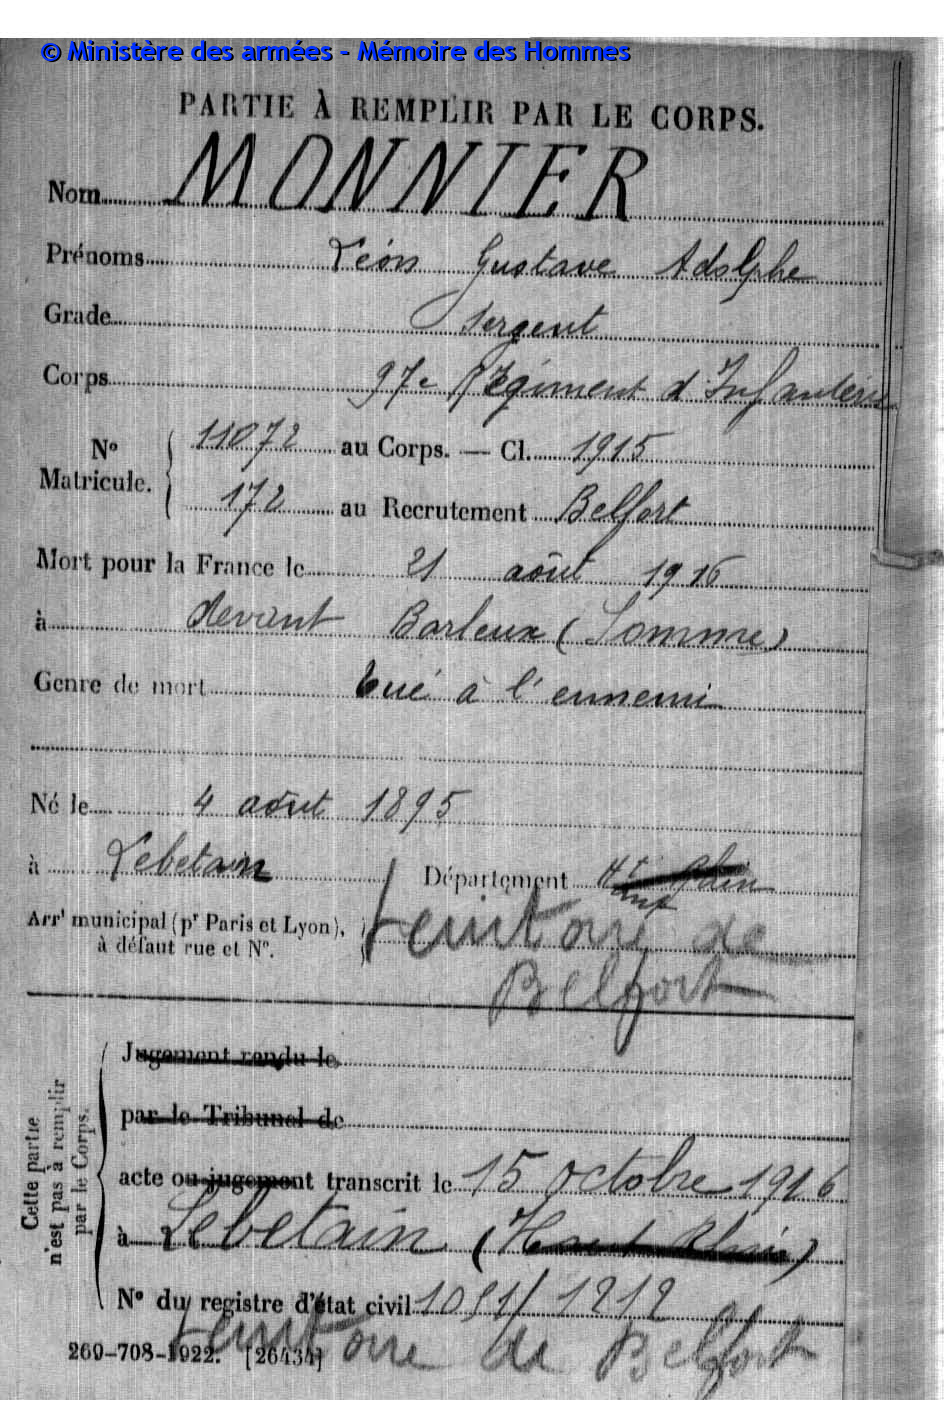 © Ministère des armées - Mémoire des Hommes
PARTIE À REMPLIR PAR LE CORPS.
Nom MONNIER
Prénoms Léon Gustave Adolphe
Grade Sergent
Corps 97e Régiment d'Infanterie
N° Matricule. 11072 au Corps. — Cl. 1915
172 au Recrutement Belfort
Mort pour la France le 21 août 1916
à devant Barleux (Somme)
Genre de mort tué à l'ennemi
Né le 4 août 1895
à Lebetain Département Ht Rhin
Arrt municipal (pr Paris et Lyon), à défaut rue et N°.
territoire de
Belfort
Cette partie n'est pas à remplir par le Corps.
Jugement rendu le
par le Tribunal de
acte ou jugement transcrit le 15 octobre 1916
à Lebetain (Haut Rhin)
N° du registre d'état civil
territoire de Belfort
260-708-1922. [26434]